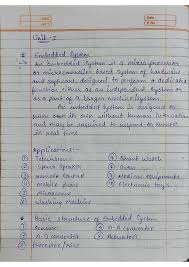 Unit-I
Embedded System
An Embedded System is a microprocessor
or microcontroller based system of hardware
and software designed to perform a dedicated
function either as an independent system or
as a part of a larger system
An embedded system
work its own without human intervention
and may be required to respond to events
in real time
Applications:-
① Television
② Space
③ remote control
④ mobile phone
⑤ Microwave
⑥ Washing Machine
⑦ Smart Watch
⑧ Oven
⑨ Medical equipments
⑩ Electronic toys
Basic structure of Embedded System
① Sensor
② A-D converter
③ Processor/ASIC
④ D-A converter
⑤ Actuator